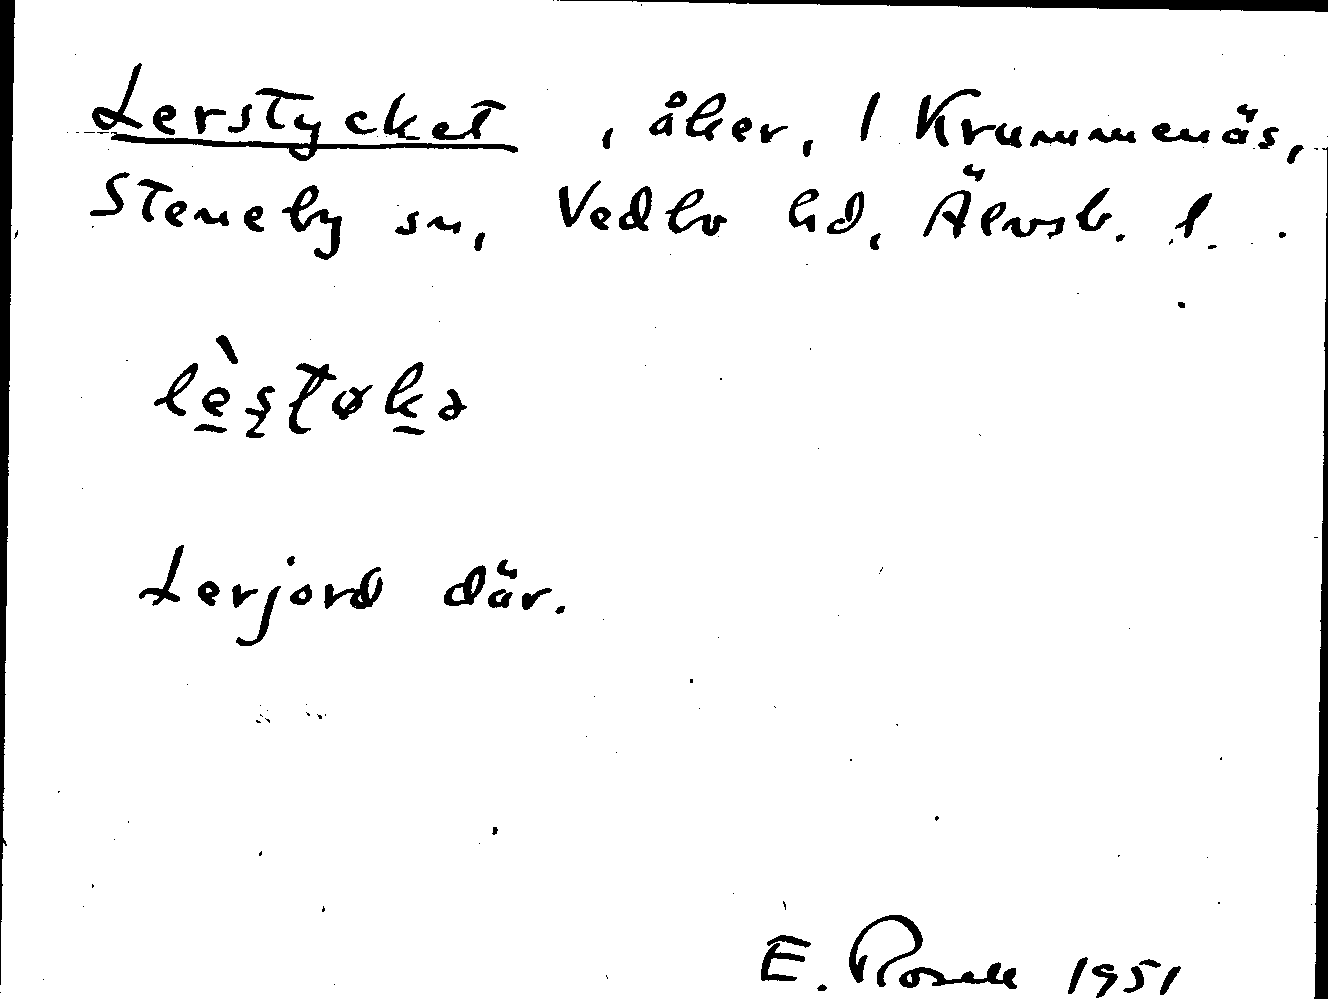 Lerstycket , åker, 1 Krummenäs,
Steneby sn, Vedbo hd, Älvsb. l.
lèstøkə
Lerjord där.
E. Rosell 1951